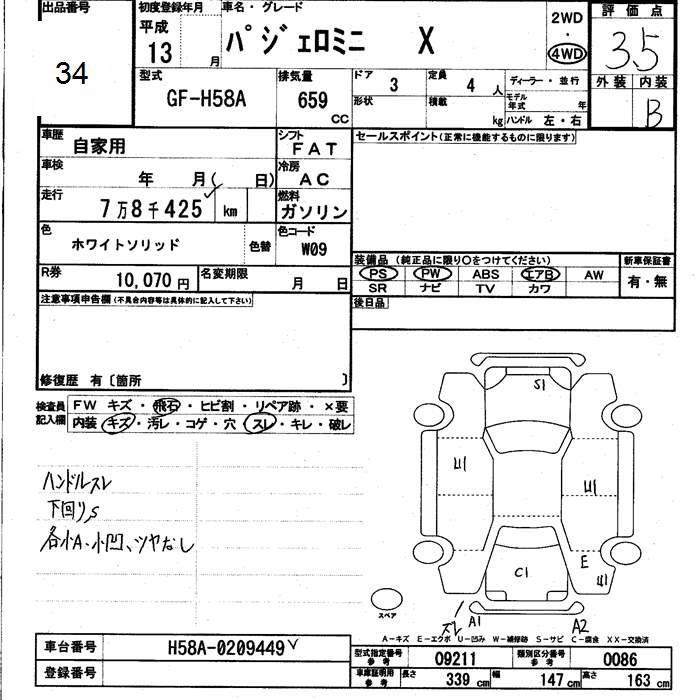 出品番号
34
初度登録年月
平成
13 月
車名・グレード
パジェロミニ X
2WD
・
4WD
評価点
3.5
外装 内装
B
型式
GF-H58A
排気量
659 CC
ドア
3
定員
4 人
ディーラー・並行
形状
積載 kg
モデル年式 年
ハンドル 左・右
車歴
自家用
シフト
FAT
セールスポイント(正常に機能するものに限ります)
車検
年 月( 日)
冷房
AC
走行
7万8千425 km
燃料
ガソリン
色
ホワイトソリッド
色替
色コード
W09
装備品(純正品に限り○をつけてください)
新車保証書
PS PW ABS エアB AW
有・無
SR ナビ TV カワ
R券
10,070円
名変期限
月 日
後日品
注意事項申告欄(不具合内容等は具体的に記入して下さい)
修復歴 有〔箇所 〕
検査員記入欄
FW キズ・飛石・ヒビ割・リペア跡・×要
内装・キズ・汚レ・コゲ・穴・スレ・キレ・破レ
ハンドルスレ
下回りS
各小A・小凹、ツヤなし
S1
U1
U1
C1
E
U1
スペア
スレ
A1
A2
A-キズ E-エクボ U-凹み W-補修跡 S-サビ C-腐食 XX-交換済
車台番号
H58A-0209449
型式指定番号
参考
09211
類別区分番号
参考
0086
登録番号
車庫証明用
参考
長さ
339 cm
幅
147 cm
高さ
163 cm